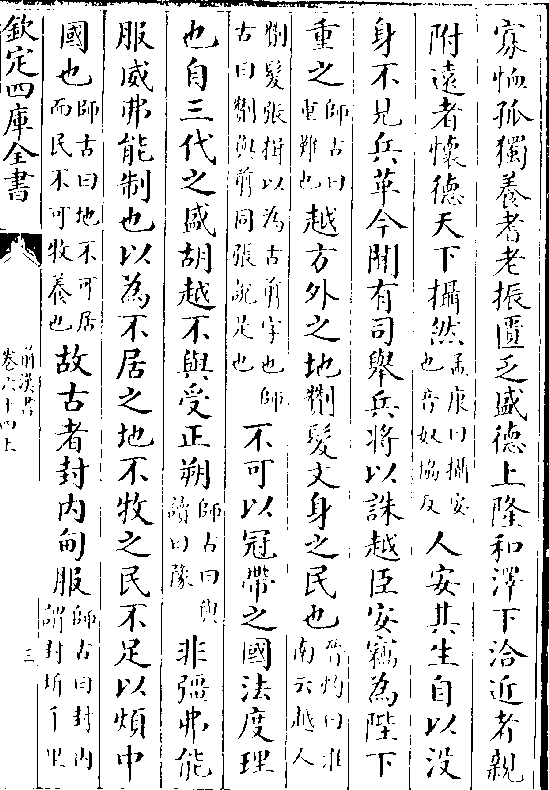 寡恤孤獨養耆老振匱乏盛德上隆和澤下洽近者親
附逺者懷德天下攝然孟康曰攝安也音奴協反人安其生自以沒
身不見兵革今聞有司舉兵將以誅越臣安竊為陛下
重之師古曰重難也越方外之地劗髮文身之民也晉灼曰淮南云越人
劗髮張揖以為古剪字也師古曰劗與剪同張說是也不可以冠帶之國法度理
也自三代之盛胡越不與受正朔師古曰與讀曰豫非彊弗能
服威弗能制也以為不居之地不牧之民不足以煩中
國也師古曰地不可居而民不可牧養也故古者封内甸服師古曰封内謂封圻千里
欽定四庫全書
前漢書
卷六十四上
三